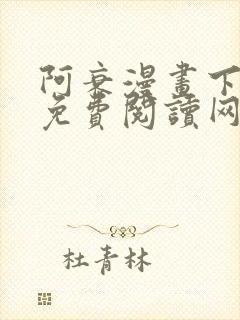 阿衰漫畫下
免費閱讀网
杜青林